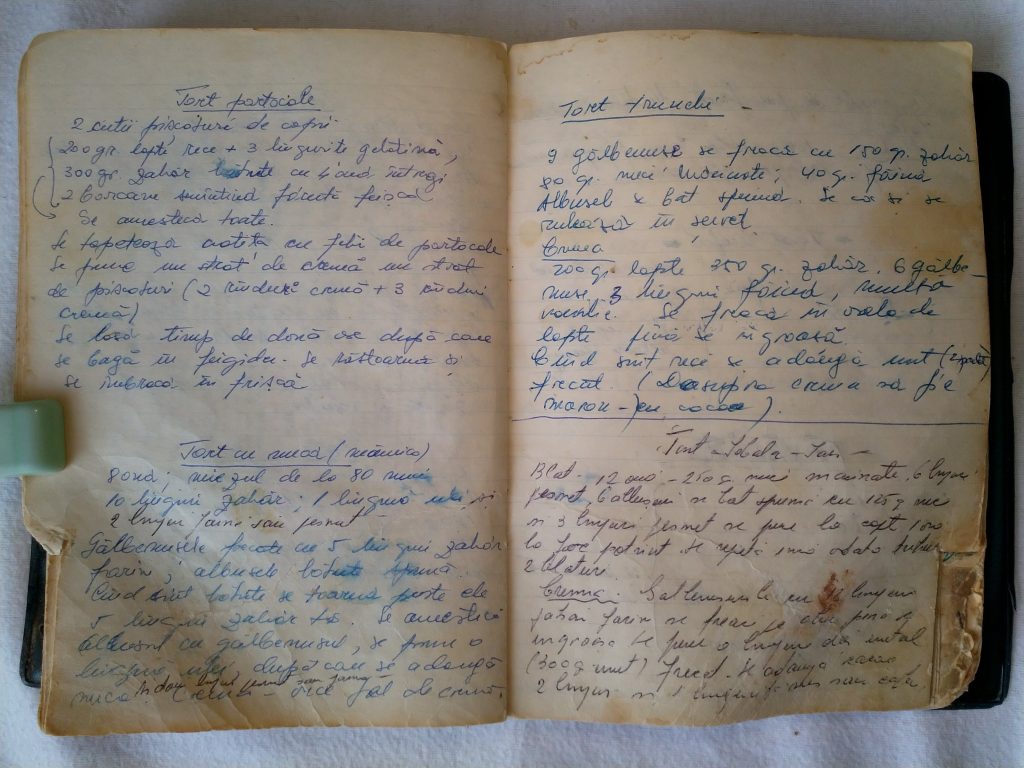 Tort portocale
2 cutii pișcoturi de copii
200 gr. lapte rece + 3 lingurite gelatină,
300 gr. zahăr bătute cu 4 ouă întregi
2 borcane smântînă făcută frișcă
Se amestecă toate.
Se tapetează cratița cu felii de portocale
Se pune un strat de cremă un strat
de pișcoturi (2 rînduri cremă + 3 rînduri
cremă)
Se lasă timp de două ore după care
se bagă în frigider. Se răstoarnă și
se îmbracă în frișcă
Tort cu nucă (mămica)
8 ouă; miezul de la 80 nuci
10 linguri zahăr; 1 lingură ulei și
2 linguri făină sau pesmet
Gălbenusele frecate cu 5 linguri zahăr
farin; albusele bătute spumă.
Cînd sînt bătute se toarnă peste ele
5 linguri zahăr tos. Se amestică
albusul cu gălbenusul, se pune o
lingură ulei, după care se adaugă
nuca. In două linguri pesmet sau făină
Crema - orice fel de cremă.
Tort trunchi
9 gălbenuse se freacă cu 150 gr. zahăr
80 gr. nuci măcinate; 40 gr. făină
Albusele se bat spumă. Se coc și se
rulează în servet
Crema
200 gr. lapte 350 gr. zahăr. 6 gălbe-
nuse, 3 linguri făină, multă
vanilie. Se freacă în oala de
lapte pînă se îngroasă.
Cînd sînt reci se adaugă unt (1 pachet)
frecat. (Deasupra crema să fie
maron - cu cacao).
Tort
Blat - 12 ouă - 250 g. nuci macinate, 6 linguri
pesmet, 6 albușuri se bat spumă cu 125 g nuci
si 3 linguri pesmet se pune la copt
la foc potrivit se repetă încă odată
2 blaturi.
Crema. Galbenusurile cu linguri
zahar farin se freacă pînă se
ingroase se pune o lingura din untul
(300 g unt) frecat. Se adauga cacao
2 linguri si 1 lingura